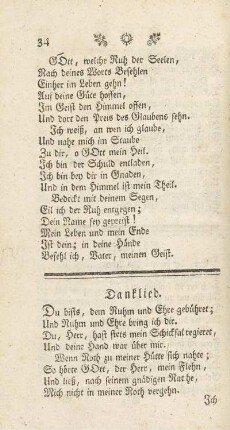 34
GOtt, welche Ruh der Seelen,
Nach deines Worts Befehlen
Einher im Leben gehn!
Auf deine Güte hoffen,
Im Geist den Himmel offen,
Und dort den Preis des Glaubens sehn.
Ich weiß, an wen ich glaube,
Und nahe mich im Staube
Zu dir, o GOtt mein Heil.
Ich bin der Schuld entladen,
Ich bin bey dir in Gnaden,
Und in dem Himmel ist mein Theil.
Bedeckt mit deinem Segen,
Eil ich der Ruh entgegen;
Dein Name sey gepreist!
Mein Leben und mein Ende
Ist dein; in deine Hände
Befehl ich, Vater, meinen Geist.
Danklied.
Du bists, dem Ruhm und Ehre gebühret;
Und Ruhm und Ehre bring ich dir.
Du, Herr, hast stets mein Schicksal regieret,
Und deine Hand war über mir.
Wenn Noth zu meiner Hütte sich nahte;
So hörte GOtt, der Herr, mein Flehn,
Und ließ, nach seinem gnädigen Rathe,
Mich nicht in meiner Noth vergehn.
Ich